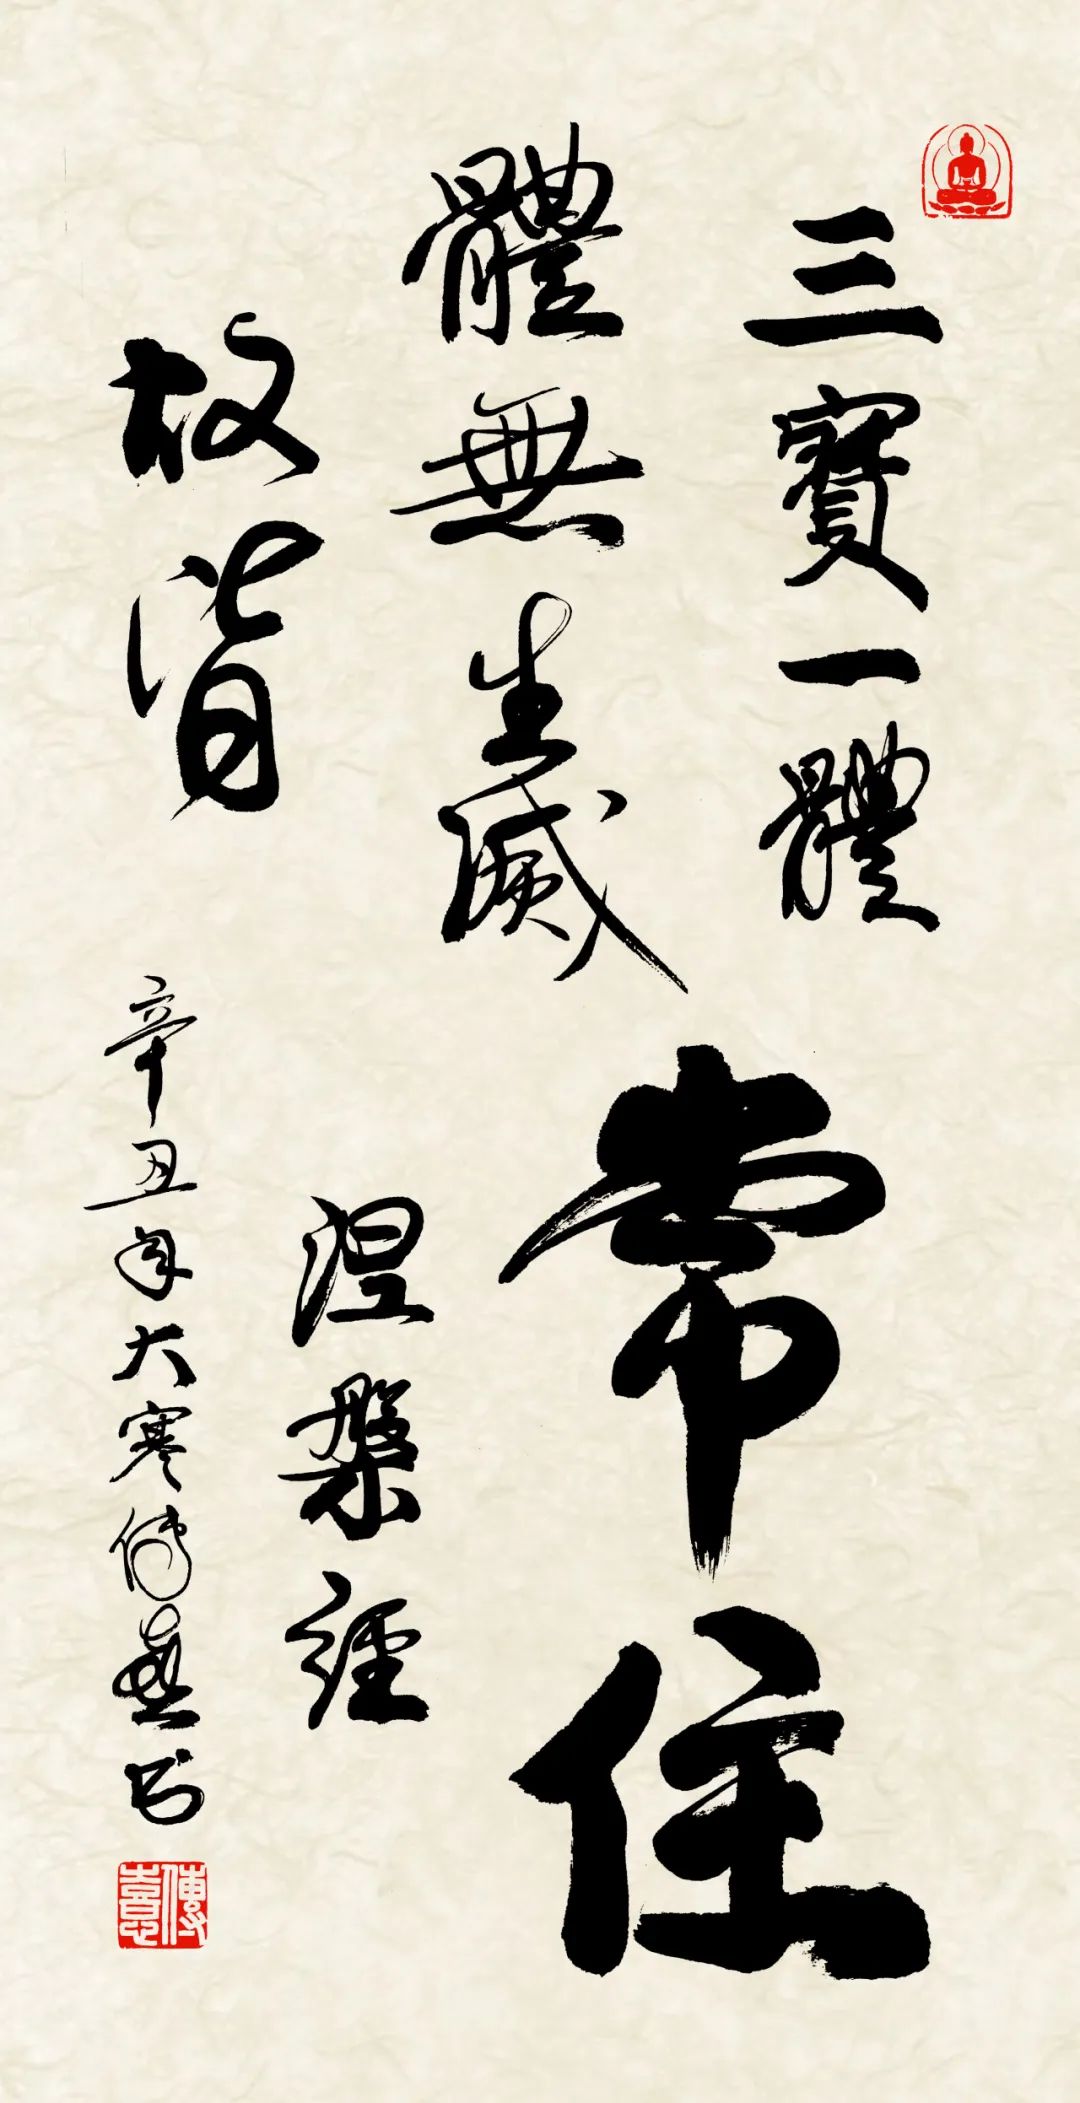 三寶一體
體無生滅
故皆
常住
涅槃經
辛丑年大寒傳憙书
傳憙